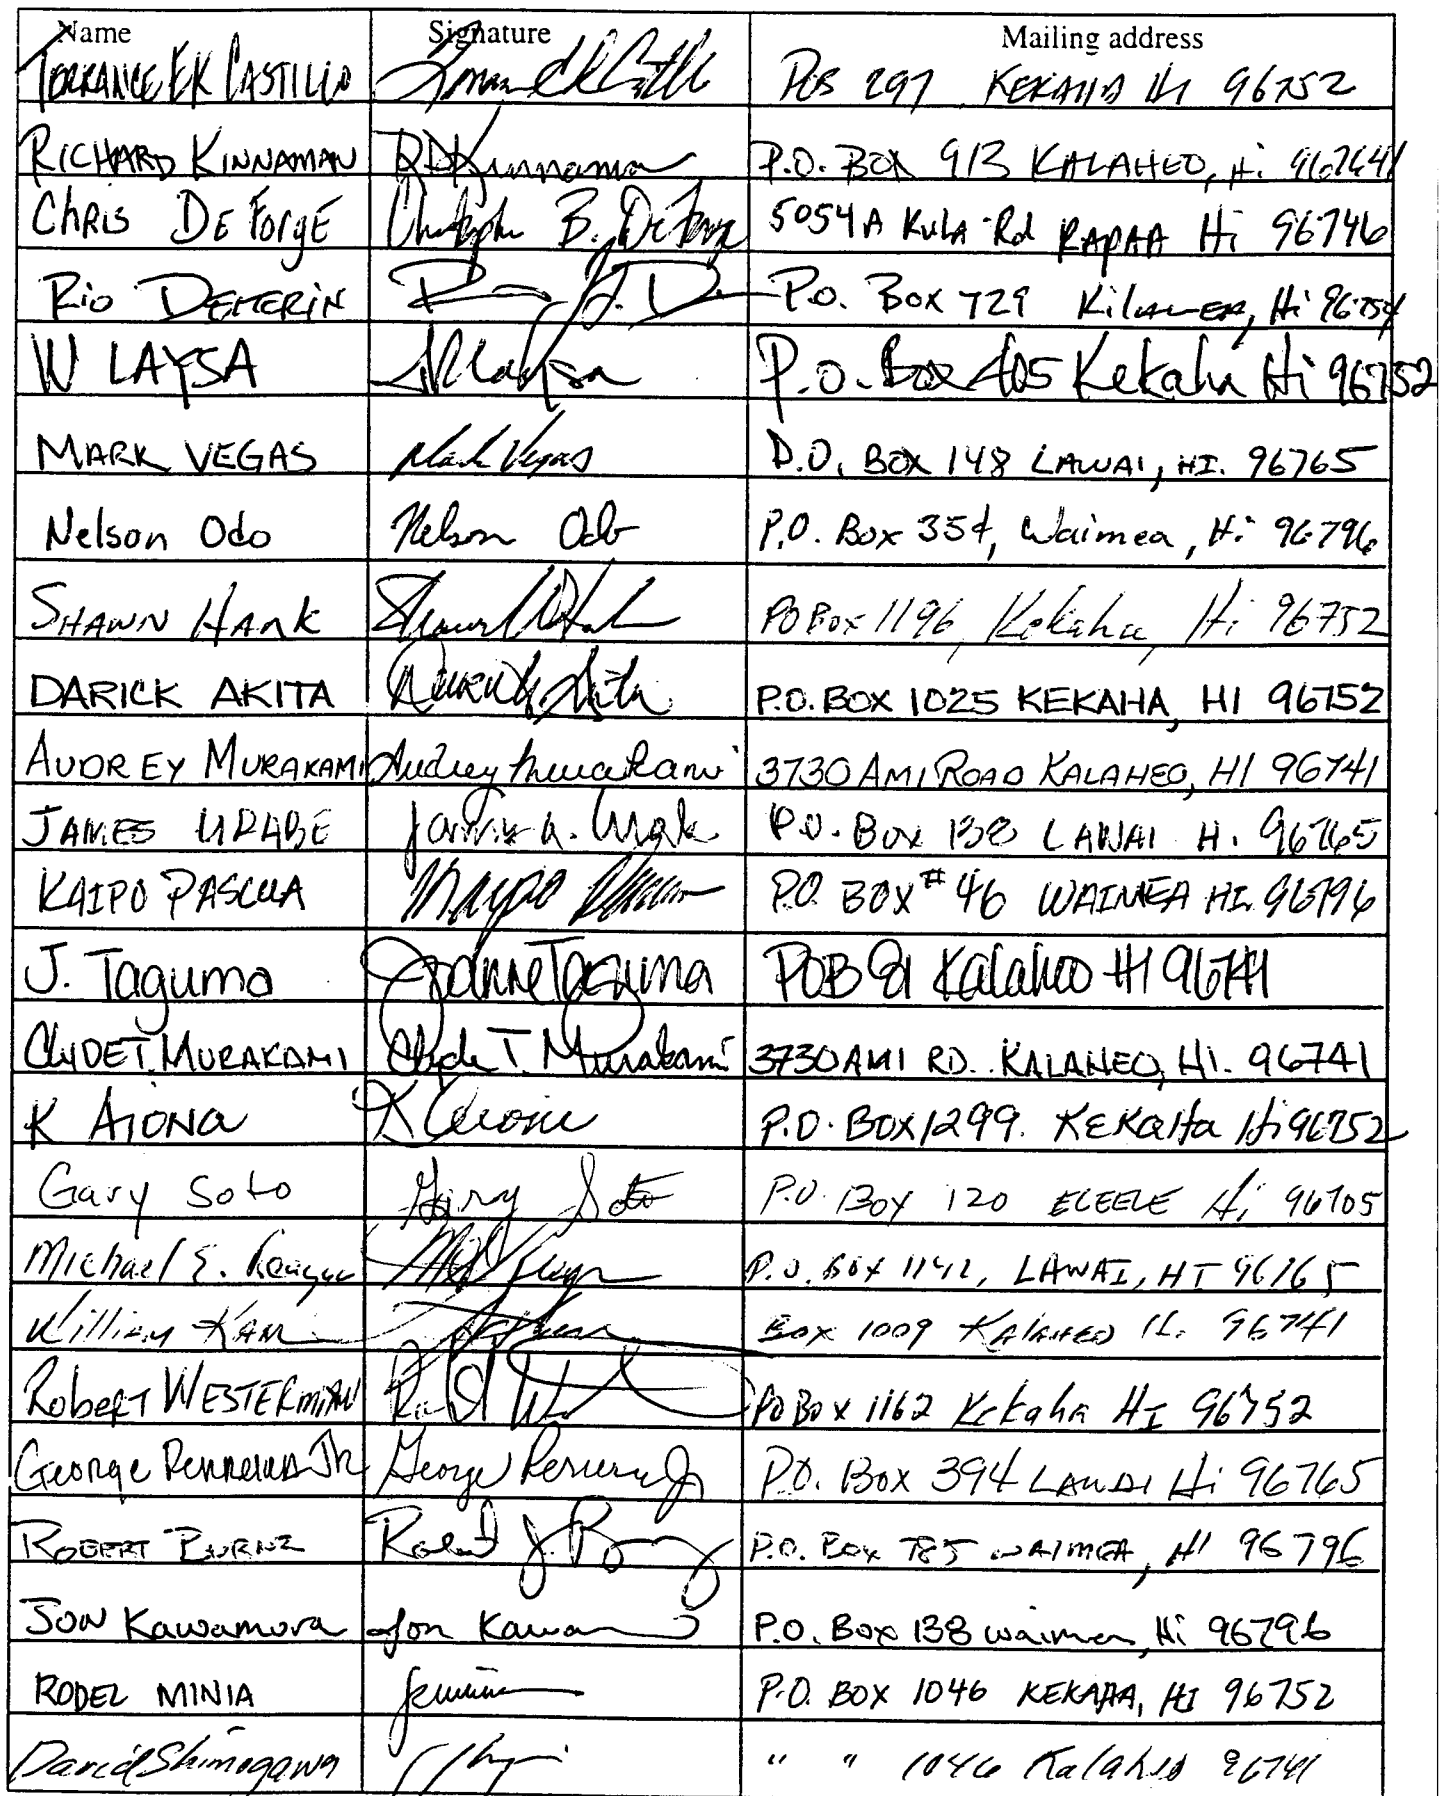 Name Signature Mailing address
TERRANCE EK CASTILLO POB 297 KEKAHA HI 96752
RICHARD KINNAMAN RDKinnaman P.O. BOX 913 KALAHEO, Hi 96741
CHRIS DE FORGE Christopher B. DeForge 5054A KULA Rd KAPAA Hi 96746
Rio DEHERIN P.O. Box 729 KILAUEA, Hi 96754
W LAYSA WLaysa P.O. Box 405 Kekaha Hi 96752
MARK VEGAS Mark Vegas P.O. BOX 148 LAWAI, HI. 96765
Nelson Odo Nelson Odo P.O. Box 354, Waimea, Hi 96796
SHAWN HANK PO Box 1196, Kekaha, Hi 96752
DARICK AKITA P.O. BOX 1025 KEKAHA, HI 96752
AUDREY MURAKAMI Audrey Murakami 3730 AMI ROAD KALAHEO, HI 96741
JAMES URABE James A. Urabe P.O. Box 138 LAWAI H. 96765
KAIPO PASCUA Kaipo Pascua P.O. BOX #46 WAIMEA HI. 96796
J. Taguma Joanne Taguma POB 81 Kalaheo HI 96741
CLYDE T. MURAKAMI Clyde T. Murakami 3730 AMI RD. KALAHEO, HI. 96741
K AIONA K Aiona P.O. BOX 1299. KEKaHa Hi 96752
Gary Soto Gary Soto P.O. Box 120 ELEELE Hi 96705
Michael E. P.O. BOX 1142, LAWAI, HI 96765
William KAM Box 1009 KALAHEO H. 96741
Robert WESTERMAN PO Box 1162 Kekaha HI 96752
George Perreira Jr George Perreira Jr P.O. Box 394 LAWAI Hi 96765
ROBERT BURNZ P.O. Box 785 WAIMEA, HI 96796
JON Kawamura Jon Kawa P.O. Box 138 waimea, Hi 96796
RODEL MINIA P.O. BOX 1046 KEKAHA, HI 96752
David Shimogawa " " 1046 Kalaheo 96741